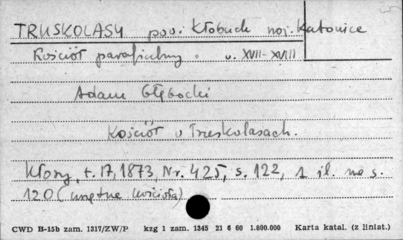 TRUSKOLASY pow. Kłobuck woj. Katowice
Kościół parafialny. w. XVII-XVIII
Adam Głębocki
Kościół w Truskolasach.
Kłosy, t. 17, 1873, Nr. 425, s. 122, 1 il. na s.
120 (wnętrze kościoła)
CWD B-15b zam. 1317/ZW/P kzg 1 zam. 1345 21 6 60 1.800.000 Karta katal. (z liniat.)